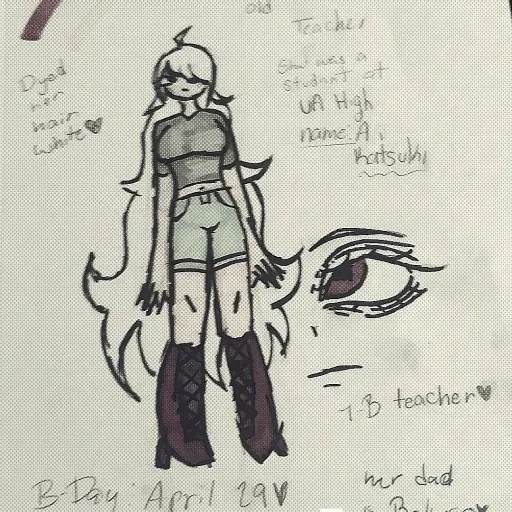 old
Teacher
She was a
student of
UA High
name: Ai
Katsuki
Dyed
her
hair
white♥
1-B teacher♥
B-Day: April 29♥
her dad
is